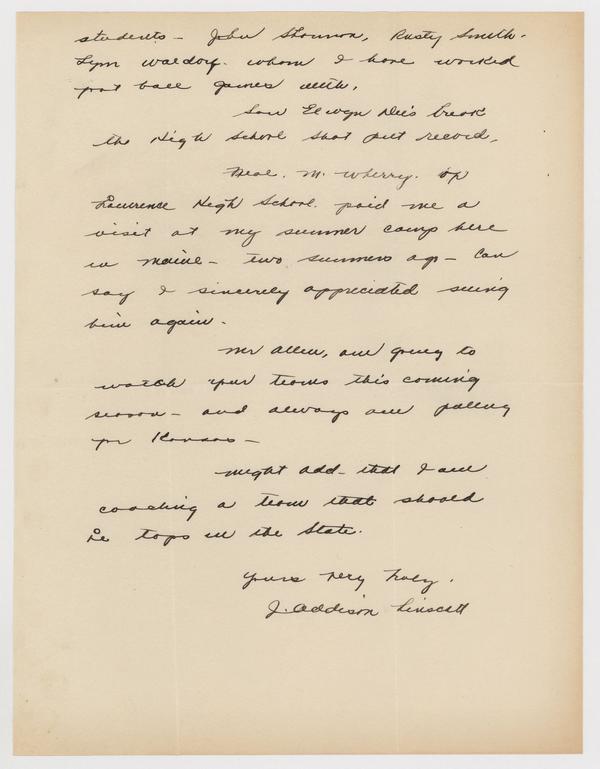 students - John Shannon, Rusty Smith.
Lynn Waldorf. whom I have worked
foot ball games with.
Saw Elwyn Dees break
the High School Shot put record.
Neal. M. Wherry. of
Lawrence High School. paid me a
visit at my summer camp here
in Maine - two summers ago - Can
say I sincerely appreciated seeing
him again.
Mr Allen, am going to
watch your teams this coming
season - and always am pulling
for Kansas -
Might add - that I am
coaching a team that should
be tops in the State.
Yours Very Truly.
J. Addison Linscott